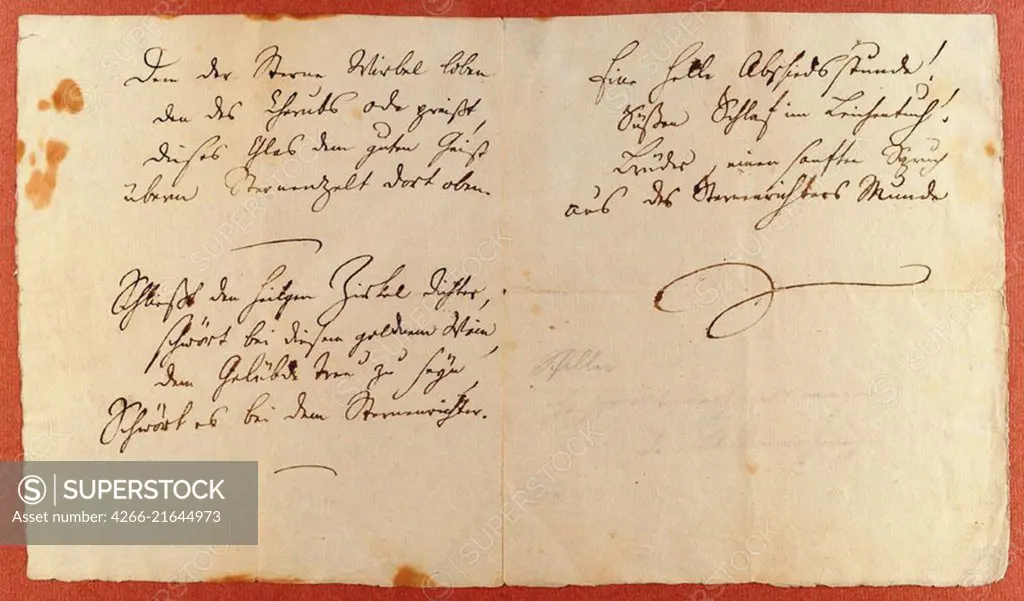 Den der Sterne Wirbel loben
den des Cherubs Ode preißt,
dieses Glas dem guten Geist
übern Sternenzelt dort oben.
Schließt den heilgen Zirkel dichter,
schwört bei diesem goldnem Wein,
dem Gelübde treu zu seyn,
Schwört es bei dem Sternenrichter.
Eine helle Abschiedsstunde!
Süßen Schlaf im Leichentuch!
Brüder, einen sanften Spruch
aus des Sternenrichters Munde
Schiller
SUPERSTOCK
Asset number: 4266-21644973